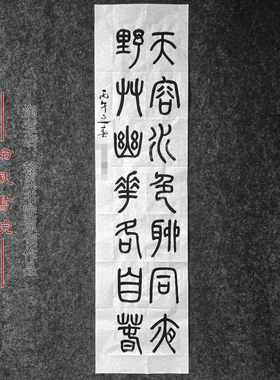 天容水色聊同夜
野艸幽華各自春
丙午之春